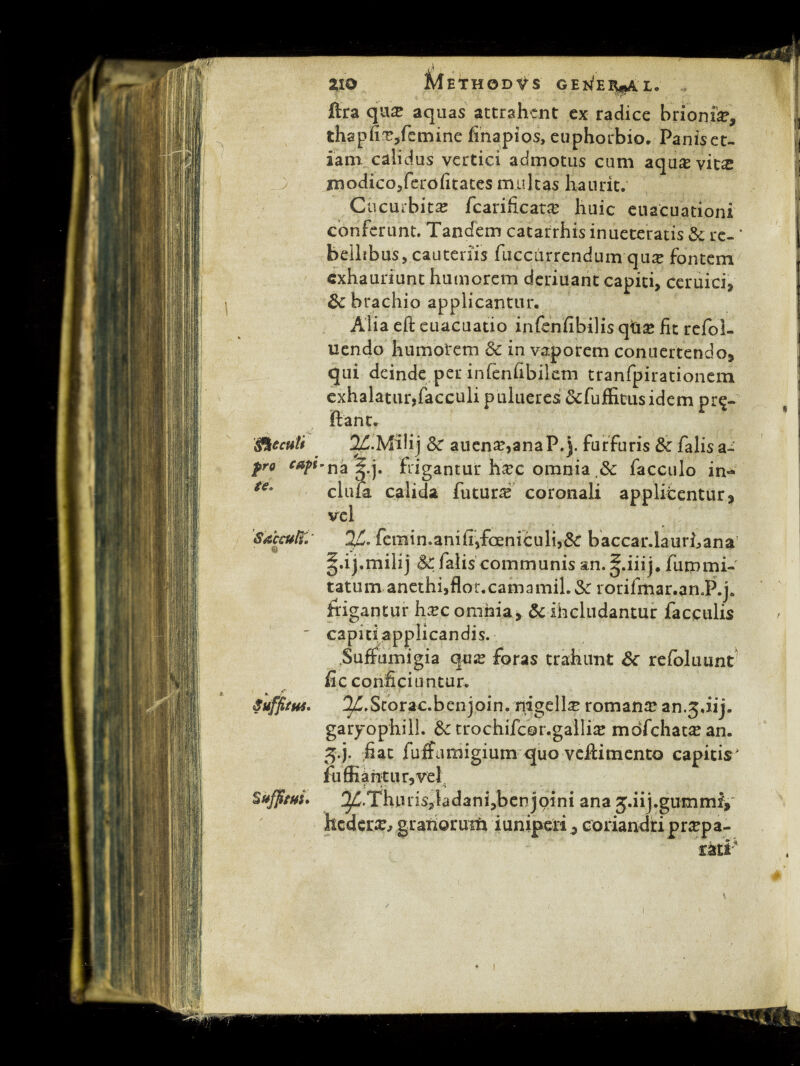 210 METHODVS GENERAL.
ſtra quæ aquas attrahent ex radice brioniæ,
thapſiæ, ſemine ſinapios, euphorbio. Panis et-
iam calidus vertici admotus cum aquæ vitæ
modico, ſeroſitates multas haurit.
Cucurbitæ ſcarificatæ huic euacuationi
conferunt. Tandem catarrhis inueteratis & re-
bellibus, cauteriis ſuccurrendum quæ fontem
exhauriunt humorem deriuant capiti, ceruici,
& brachio applicantur.
Alia eſt euacuatio inſenſibilis quæ fit reſol-
uendo humorem & in vaporem conuertendo,
qui deinde per inſenſibilem tranſpirationem
exhalatur, ſacculi pulueres & ſuffitus idem prę-
ſtant.
Sacculi ℞. Milij & auenæ, ana P.j. furfuris & ſalis a-
pro capi- na ℥.j. frigantur hæc omnia & ſacculo in-
te. cluſa calida futuræ coronali applicentur,
vel
Sacculi. ℞. ſemin. aniſi, fœniculi, & baccar. lauri, ana
℥.ij. milij & ſalis communis an. ℥.iiij. ſummi-
tatum anethi, flor. camamil. & roriſmar. an. P.j.
frigantur hæc omnia, & includantur ſacculis
capiti applicandis.
Suffumigia quæ foras trahunt & reſoluunt
ſic conficiuntur.
Suffitus. ℞. Storac. benjoin. nigellæ romanæ an. ʒ.iij.
garyophill. & trochiſcor. galliæ moſchatæ an.
ʒ.j. fiat ſuffumigium quo veſtimento capitis
ſuffiantur, vel
Suffitus. ℞. Thuris, ladani, benjoini ana ʒ.iij. gummi,
hederæ, granorum iuniperi, coriandri præpa-
rati